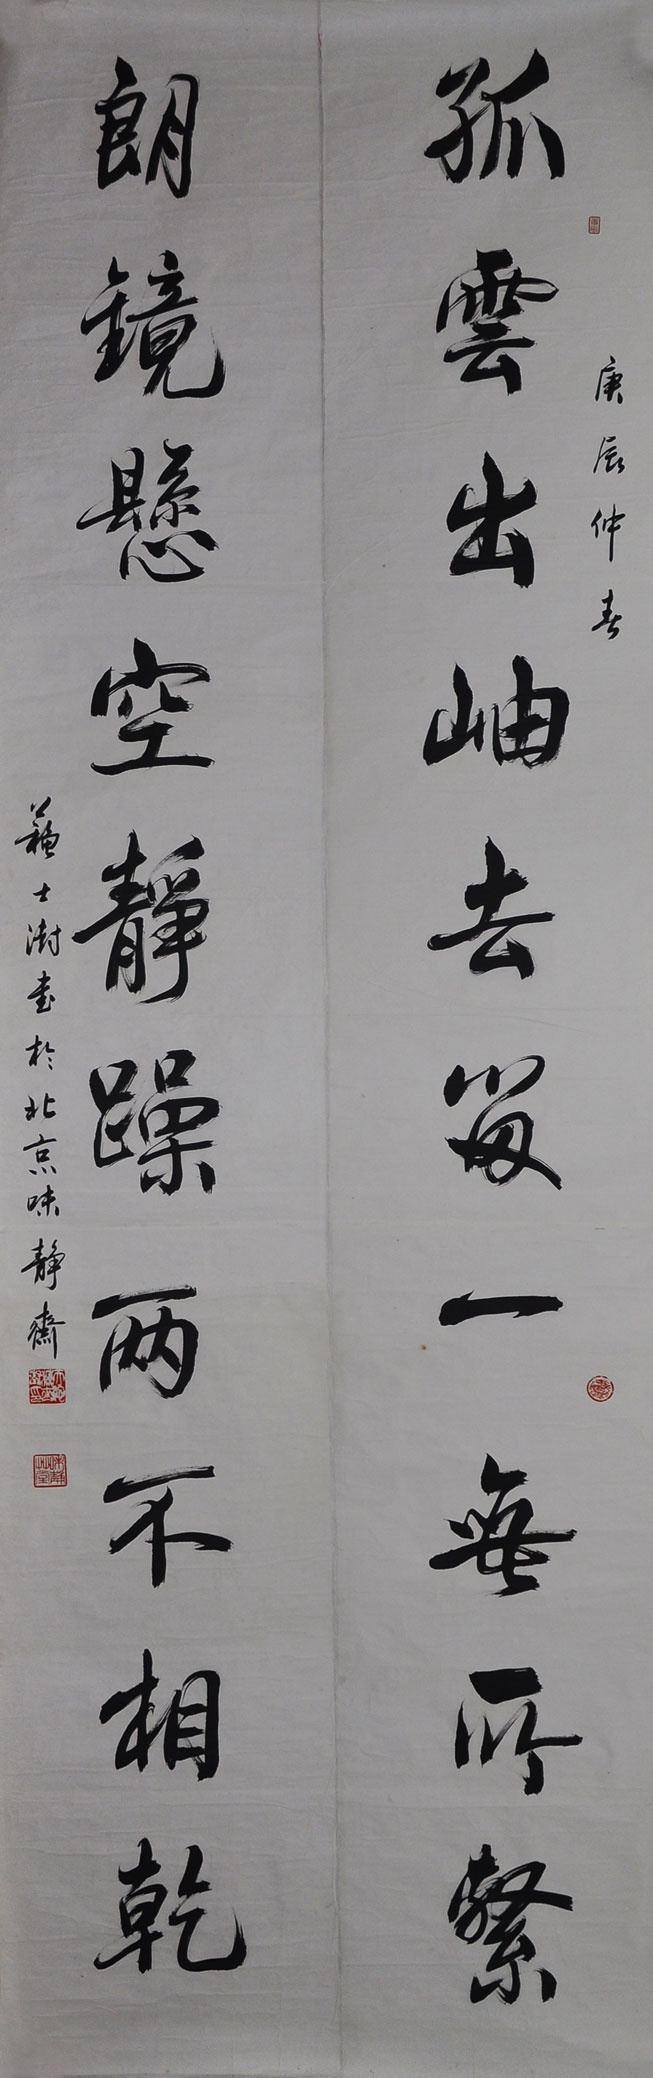 孤雲出岫去留一無所繫
庚辰仲春
朗鏡懸空靜躁兩不相乾
蘇士澍書於北京味靜齋